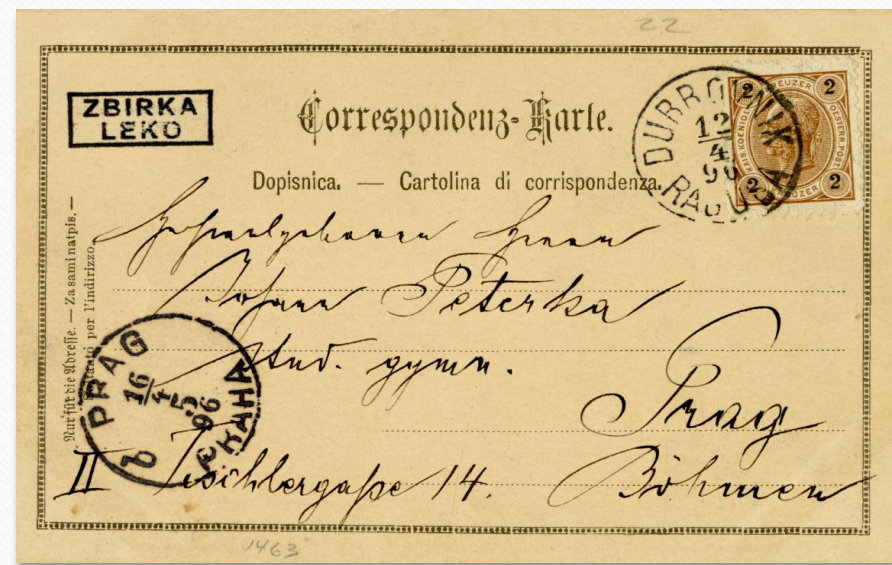 22
ZBIRKA
LEKO
Correspondenz-Karte.
Dopisnica. — Cartolina di corrispondenza.
DUBROVNIK
12
4
96
RAGUSA
2 KREUZER 2
KAIS. KOENIGL. OESTERR. POST.
2 KREUZER 2
Nur für die Adresse. — Za sami natpis. —
Soltanto per l'indirizzo.
Hochwolgeboren Herrn
Johann Peterka
stud. gymn.
Prag
II Tischlergaße 14. Böhmen
PRAG
16
4
5
96
PRAHA
1463